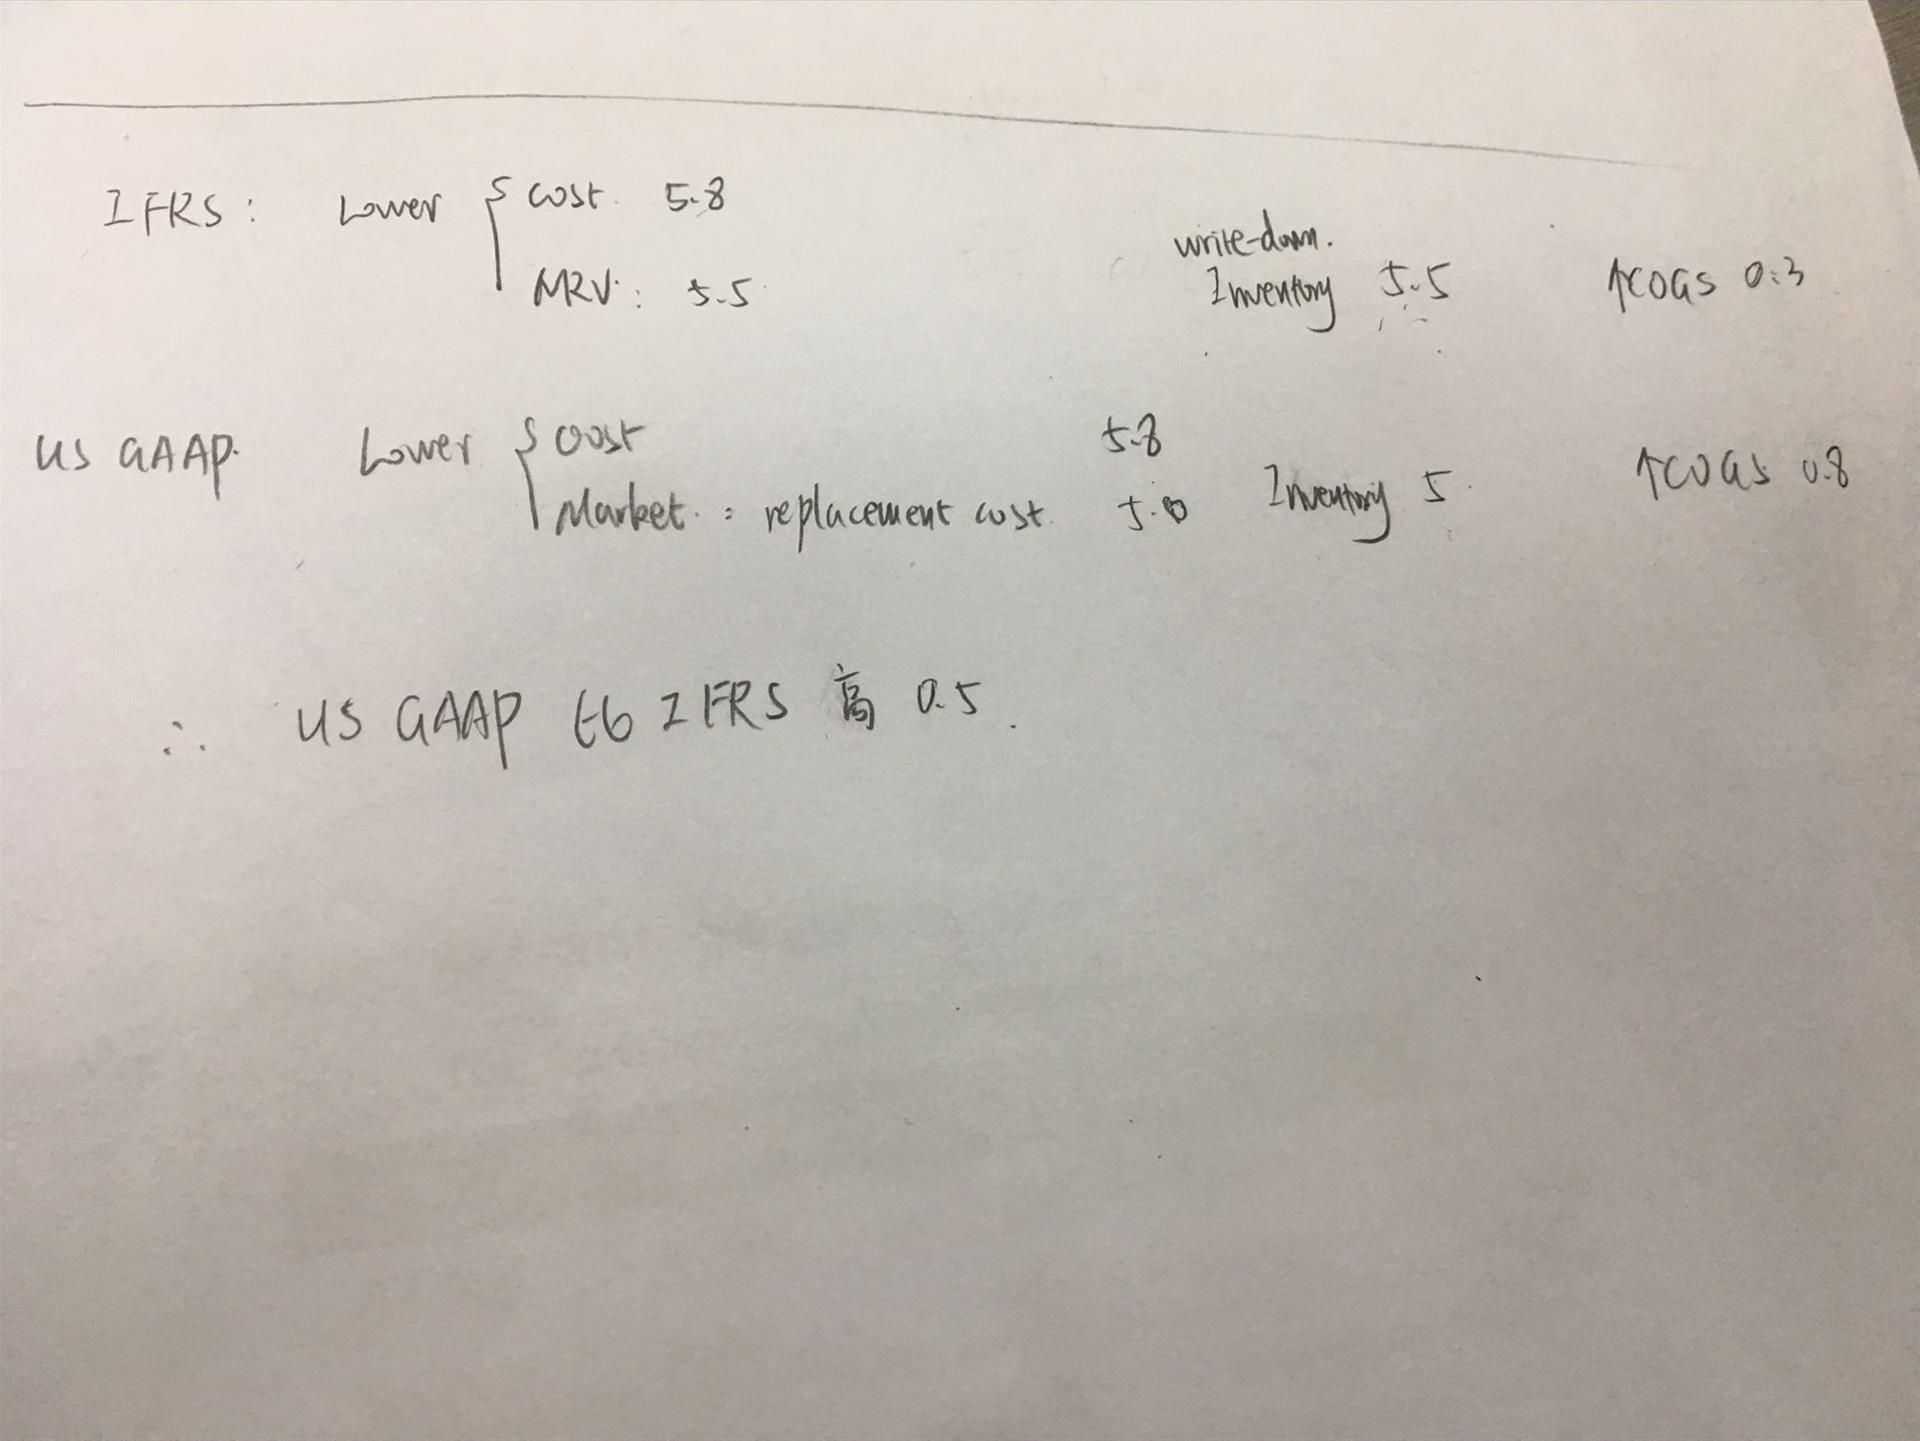 IFRS: Lower { cost. 5.8
NRV: 5.5
write-down.
Inventory 5.5 ↑COGS 0.3
US GAAP. Lower { Cost 5.8
Market. = replacement cost. 5.0 Inventory 5. ↑COGS 0.8
∴ US GAAP 比 IFRS 高 0.5.